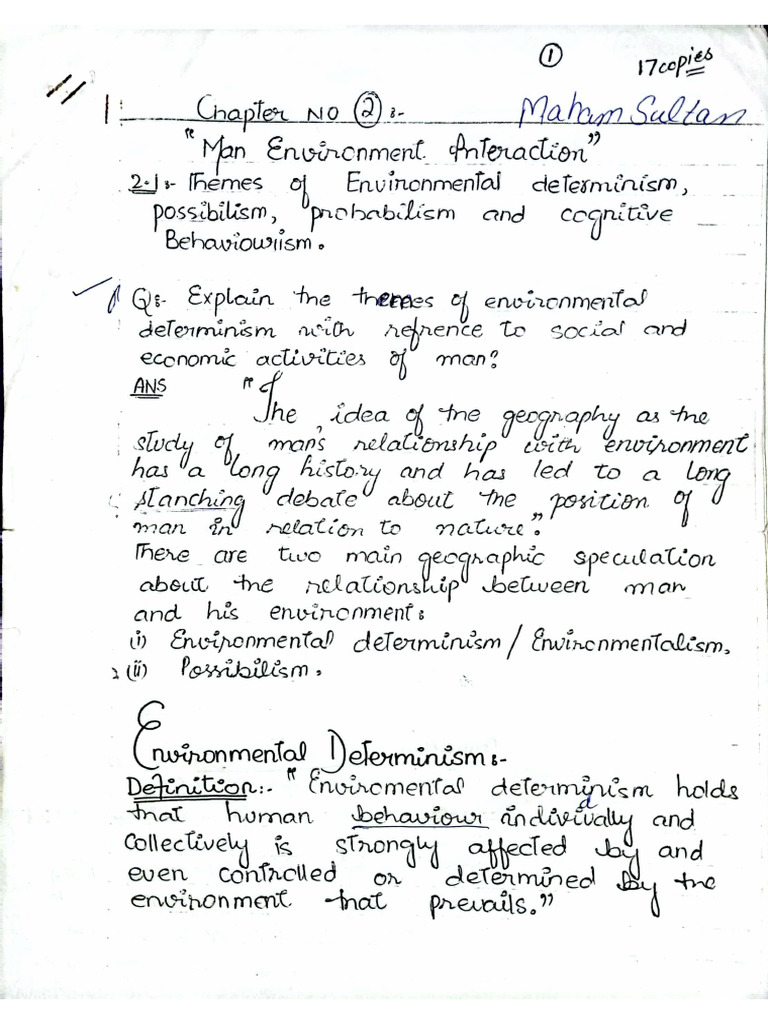 ①
17 copies
Chapter NO ② :-
Maham Sultan
"Man Environment Interaction"
2.1:- Themes of Environmental determinism,
possibilism, probabilism and cognitive
Behaviowiism.
Q:- Explain the themes of environmental
determinism with refrence to social and
economic activities of man?
ANS
"The idea of the geography as the
study of man's relationship with environment
has a long history and has led to a long
stanching debate about the position of
man in relation to nature."
There are two main geographic speculation
about the relationship between man
and his environment:
(i) Environmental determinism / Environmentalism.
(ii) Possibilism.
Environmental Determinism:-
Definition:- "Enviromental determinism holds
that human behaviour individually and
collectively is strongly affected by and
even controlled or determined by the
environment that prevails."